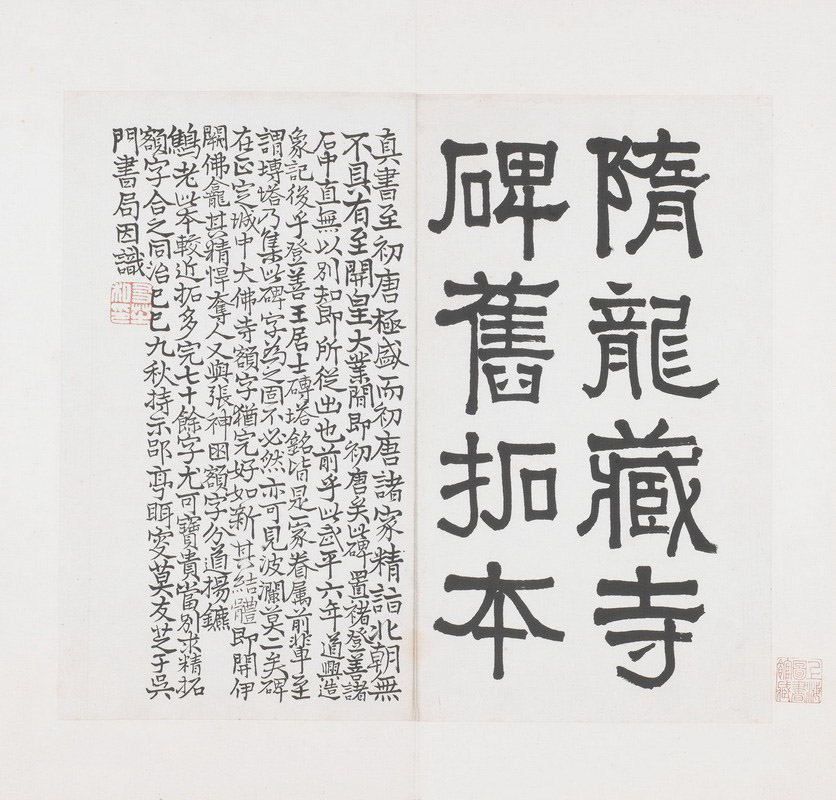 隋龍藏寺
碑舊拓本
真書至初唐極盛而初唐諸家精詣北朝無
不具有至開皇大業間即初唐矣此碑置褚登善諸
石中直無以別知即所從出也前乎此武平六年道興造
象記後乎登善王居士磚塔銘皆是一家眷属前輩至
謂塼塔乃集此碑字為之固不必然亦可見波瀾莫二矣碑
在正定城中大佛寺額字猶完好如新其結體即開伊
闕佛龕其精悍奪人又與張神囧額字分道揚鑣
鷦老此本較近拓多完七十餘字尤可寶貴當別求精拓
額字合之同治己巳九秋持示郘亭眲叟莫友芝于吳
門書局因識
上海圖書館藏